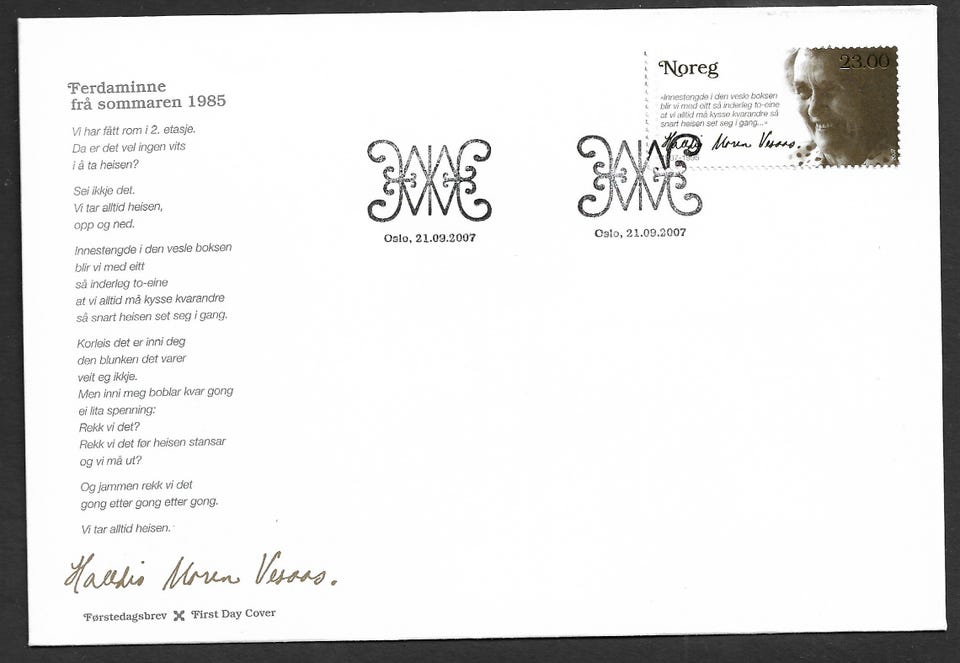 Ferdaminne
frå sommaren 1985
Vi har fått rom i 2. etasje.
Da er det vel ingen vits
i å ta heisen?
Sei ikkje det.
Vi tar alltid heisen,
opp og ned.
Innestengde i den vesle boksen
blir vi med eitt
så inderleg to-eine
at vi alltid må kysse kvarandre
så snart heisen set seg i gang.
Korleis det er inni deg
den blunken det varer
veit eg ikkje.
Men inni meg boblar kvar gong
ei lita spenning:
Rekk vi det?
Rekk vi det før heisen stansar
og vi må ut?
Og jammen rekk vi det
gong etter gong etter gong.
Vi tar alltid heisen.
Halldis Moren Vesaas.
Førstedagsbrev First Day Cover
Oslo, 21.09.2007
Oslo, 21.09.2007
Noreg
23.00
«Innestengde i den vesle boksen
blir vi med eitt så inderleg to-eine
at vi alltid må kysse kvarandre så
snart heisen set seg i gang...»
Halldis Moren Vesaas.